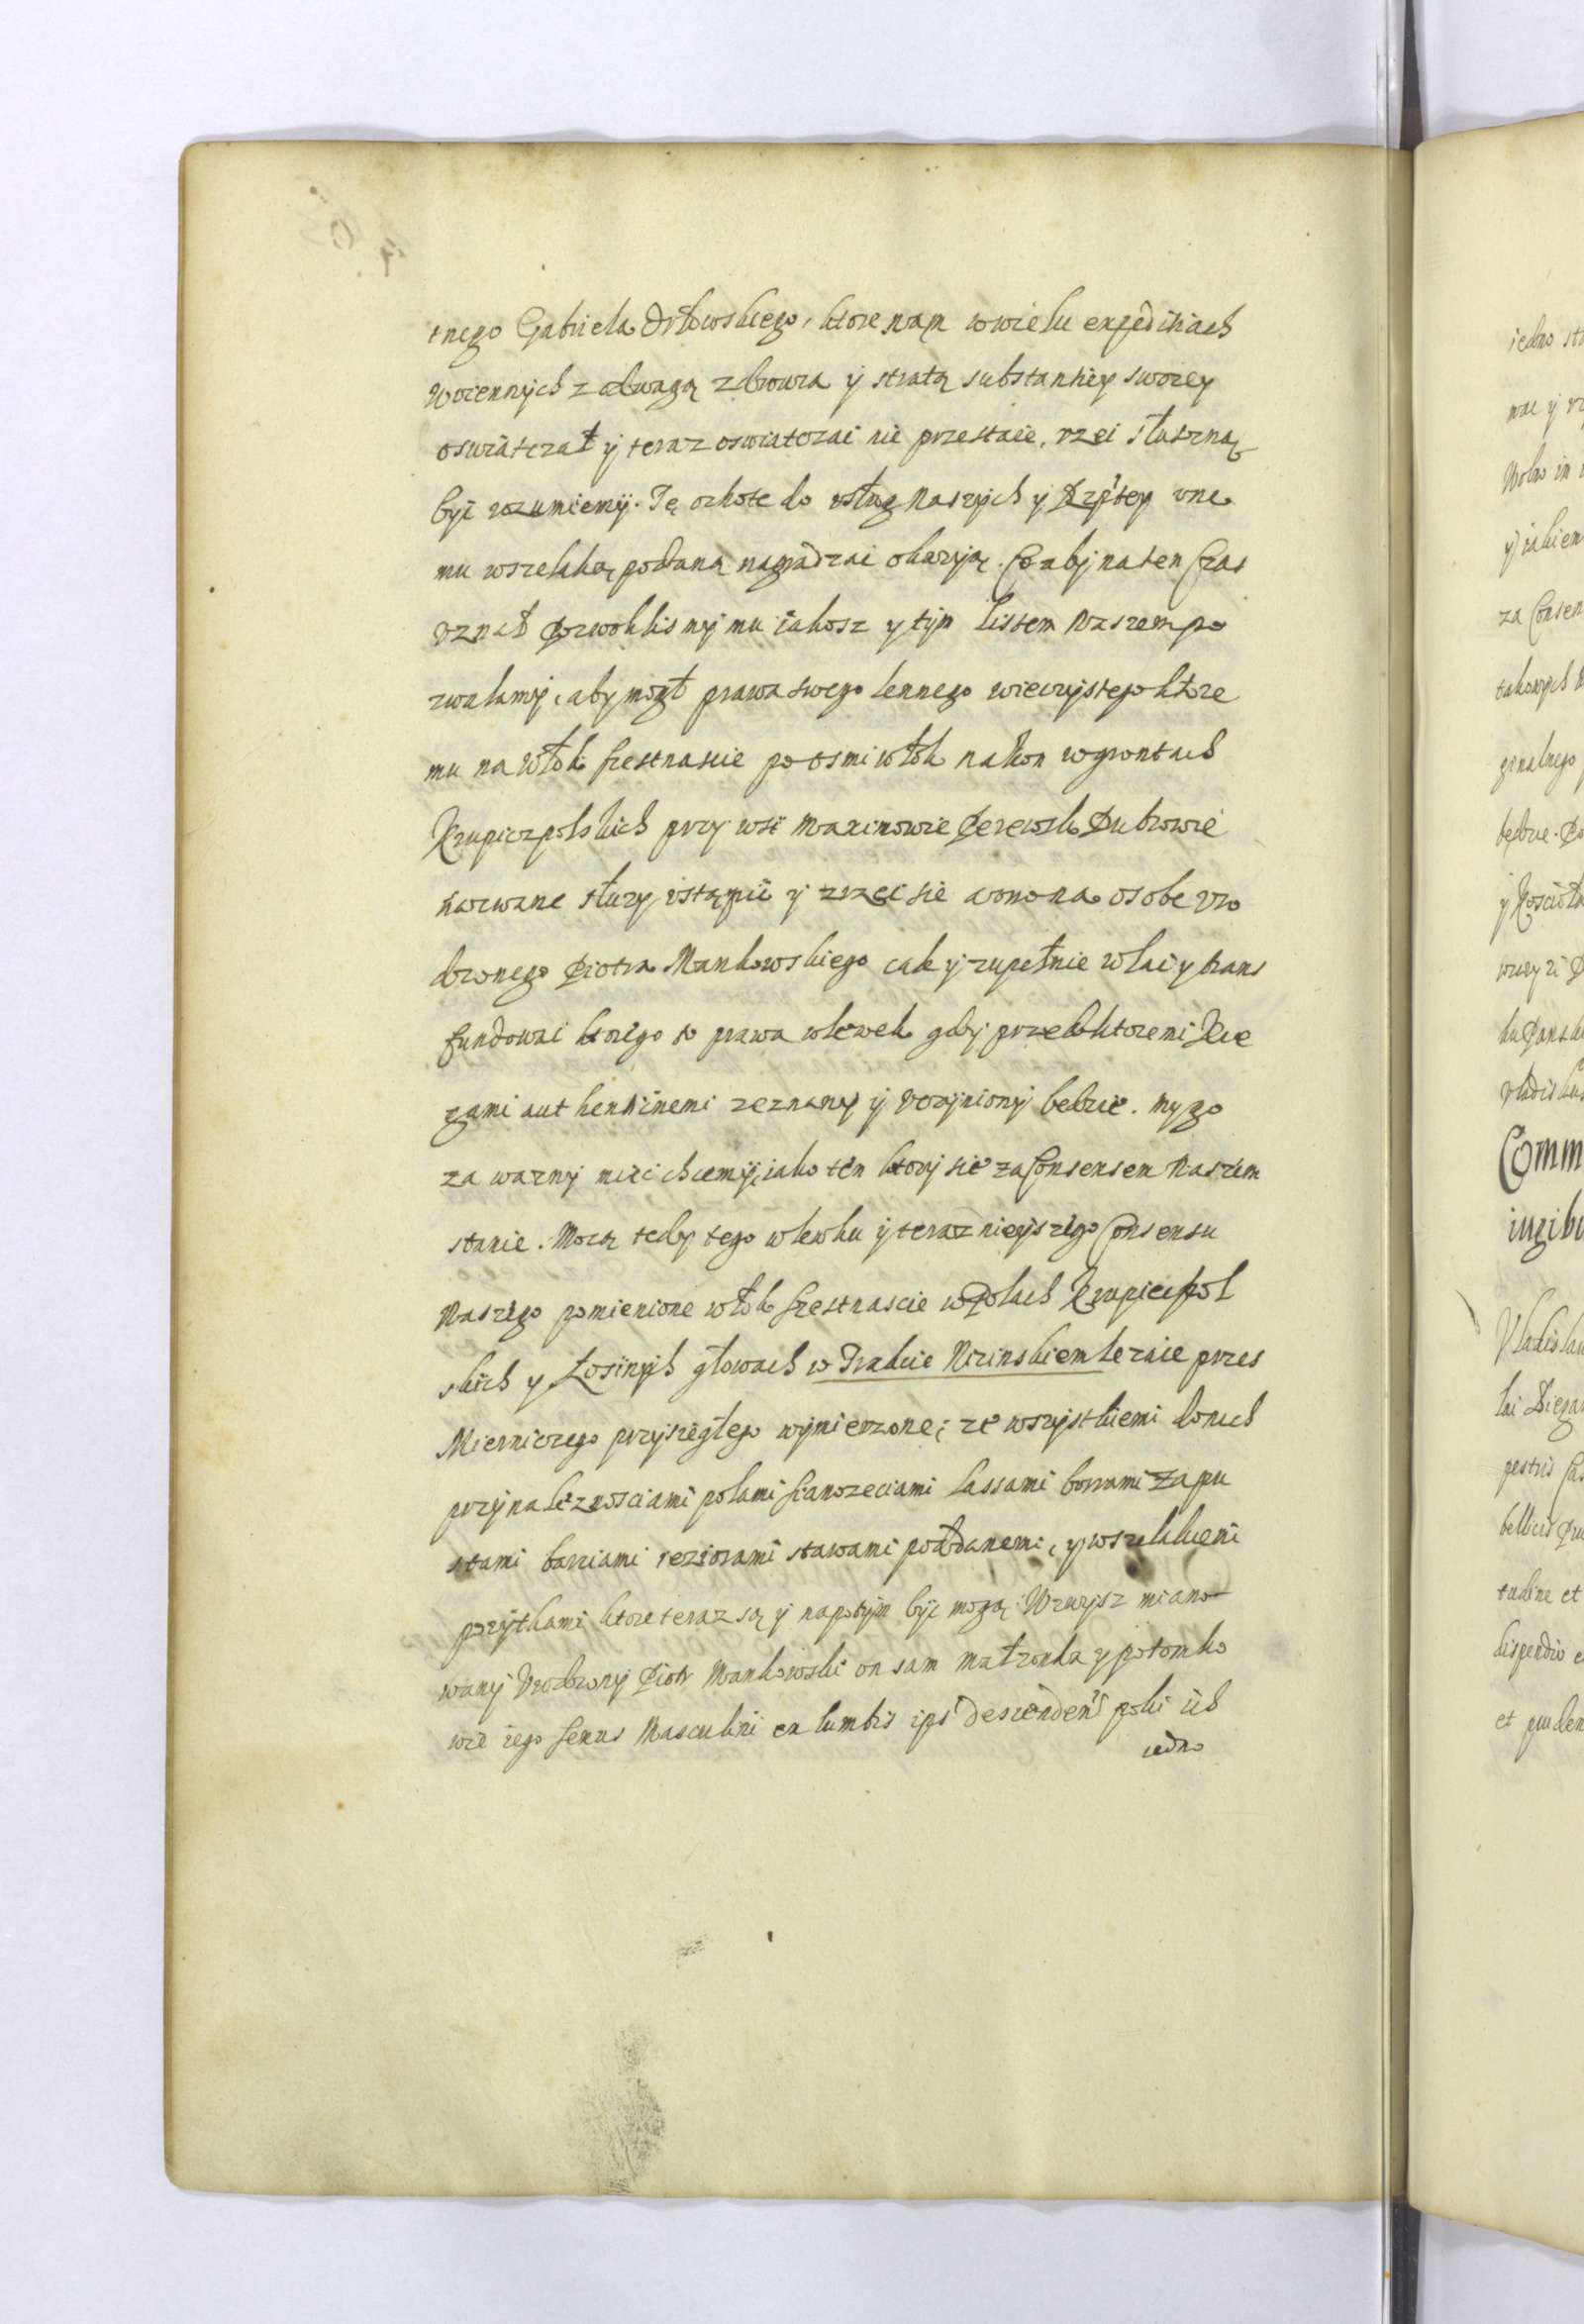 tnego Gabriela Orłowskiego, ktore nam w wielu expeditiach
Woiennych z odwagą zdrowia ÿ stratą substantiey swoiey
oswiatczał ÿ teraz oswiatczai nie przestaie, rzei słuszną
byi rozumiemÿ. Tę ochote do usług naszych ÿ Rzptey one
mu wszelaką podaną nagradzai okazyią. Co aby na ten czas
uznał pozwolilismÿ mu iakosz ÿ tÿm listem Naszem po
zwalamÿ, aby mogł prawa swego lennego wiecznÿstego ktore
mu na włok szestnascie po osmi włok na kon w grontach
Krupiczpolskich przy wsi Maximowie Derewok Dubrowie
nazwane słuzy ustąpii ÿ zrzei sie a ono na osobe Uro
dzonego Piotra Mankowskiego cale ÿ zupełnie wlai ÿ trans
fundowai ktorego to prawa wlewek gdÿ przed ktoremi Xie
gami authentinemi zeznanÿ ÿ uczÿnionÿ bedzie. my go
za waznÿ miei chcemÿ, iako ten ktorÿ sie za Consensem Naszem
stanie. Mocą tedy tego wlewku ÿ teraznieyszego Consensu
Naszego pomienione włok szestnascie w Polach Krupicpol
skich ÿ Łosinÿch głowach w Trakcie Nizinskiem lezaie przes
Mierniczego przÿsiegłego wÿmierzone; ze wszÿstkiemi donich
przÿnaleznosciami polami sianozeciami lassami borrami zapu
stami barciami ieziorami stawami poddanemi, ÿ wszelakiemi
pozÿtkami ktore teraz są ÿ napotÿm byc mogą. Wzwÿsz miano
wanÿ Urodzonÿ Piotr Mankowski on sam małzonka ÿ potomko
wie iego sexus Masculini ex lumbis ips descendens poki iich
iedno